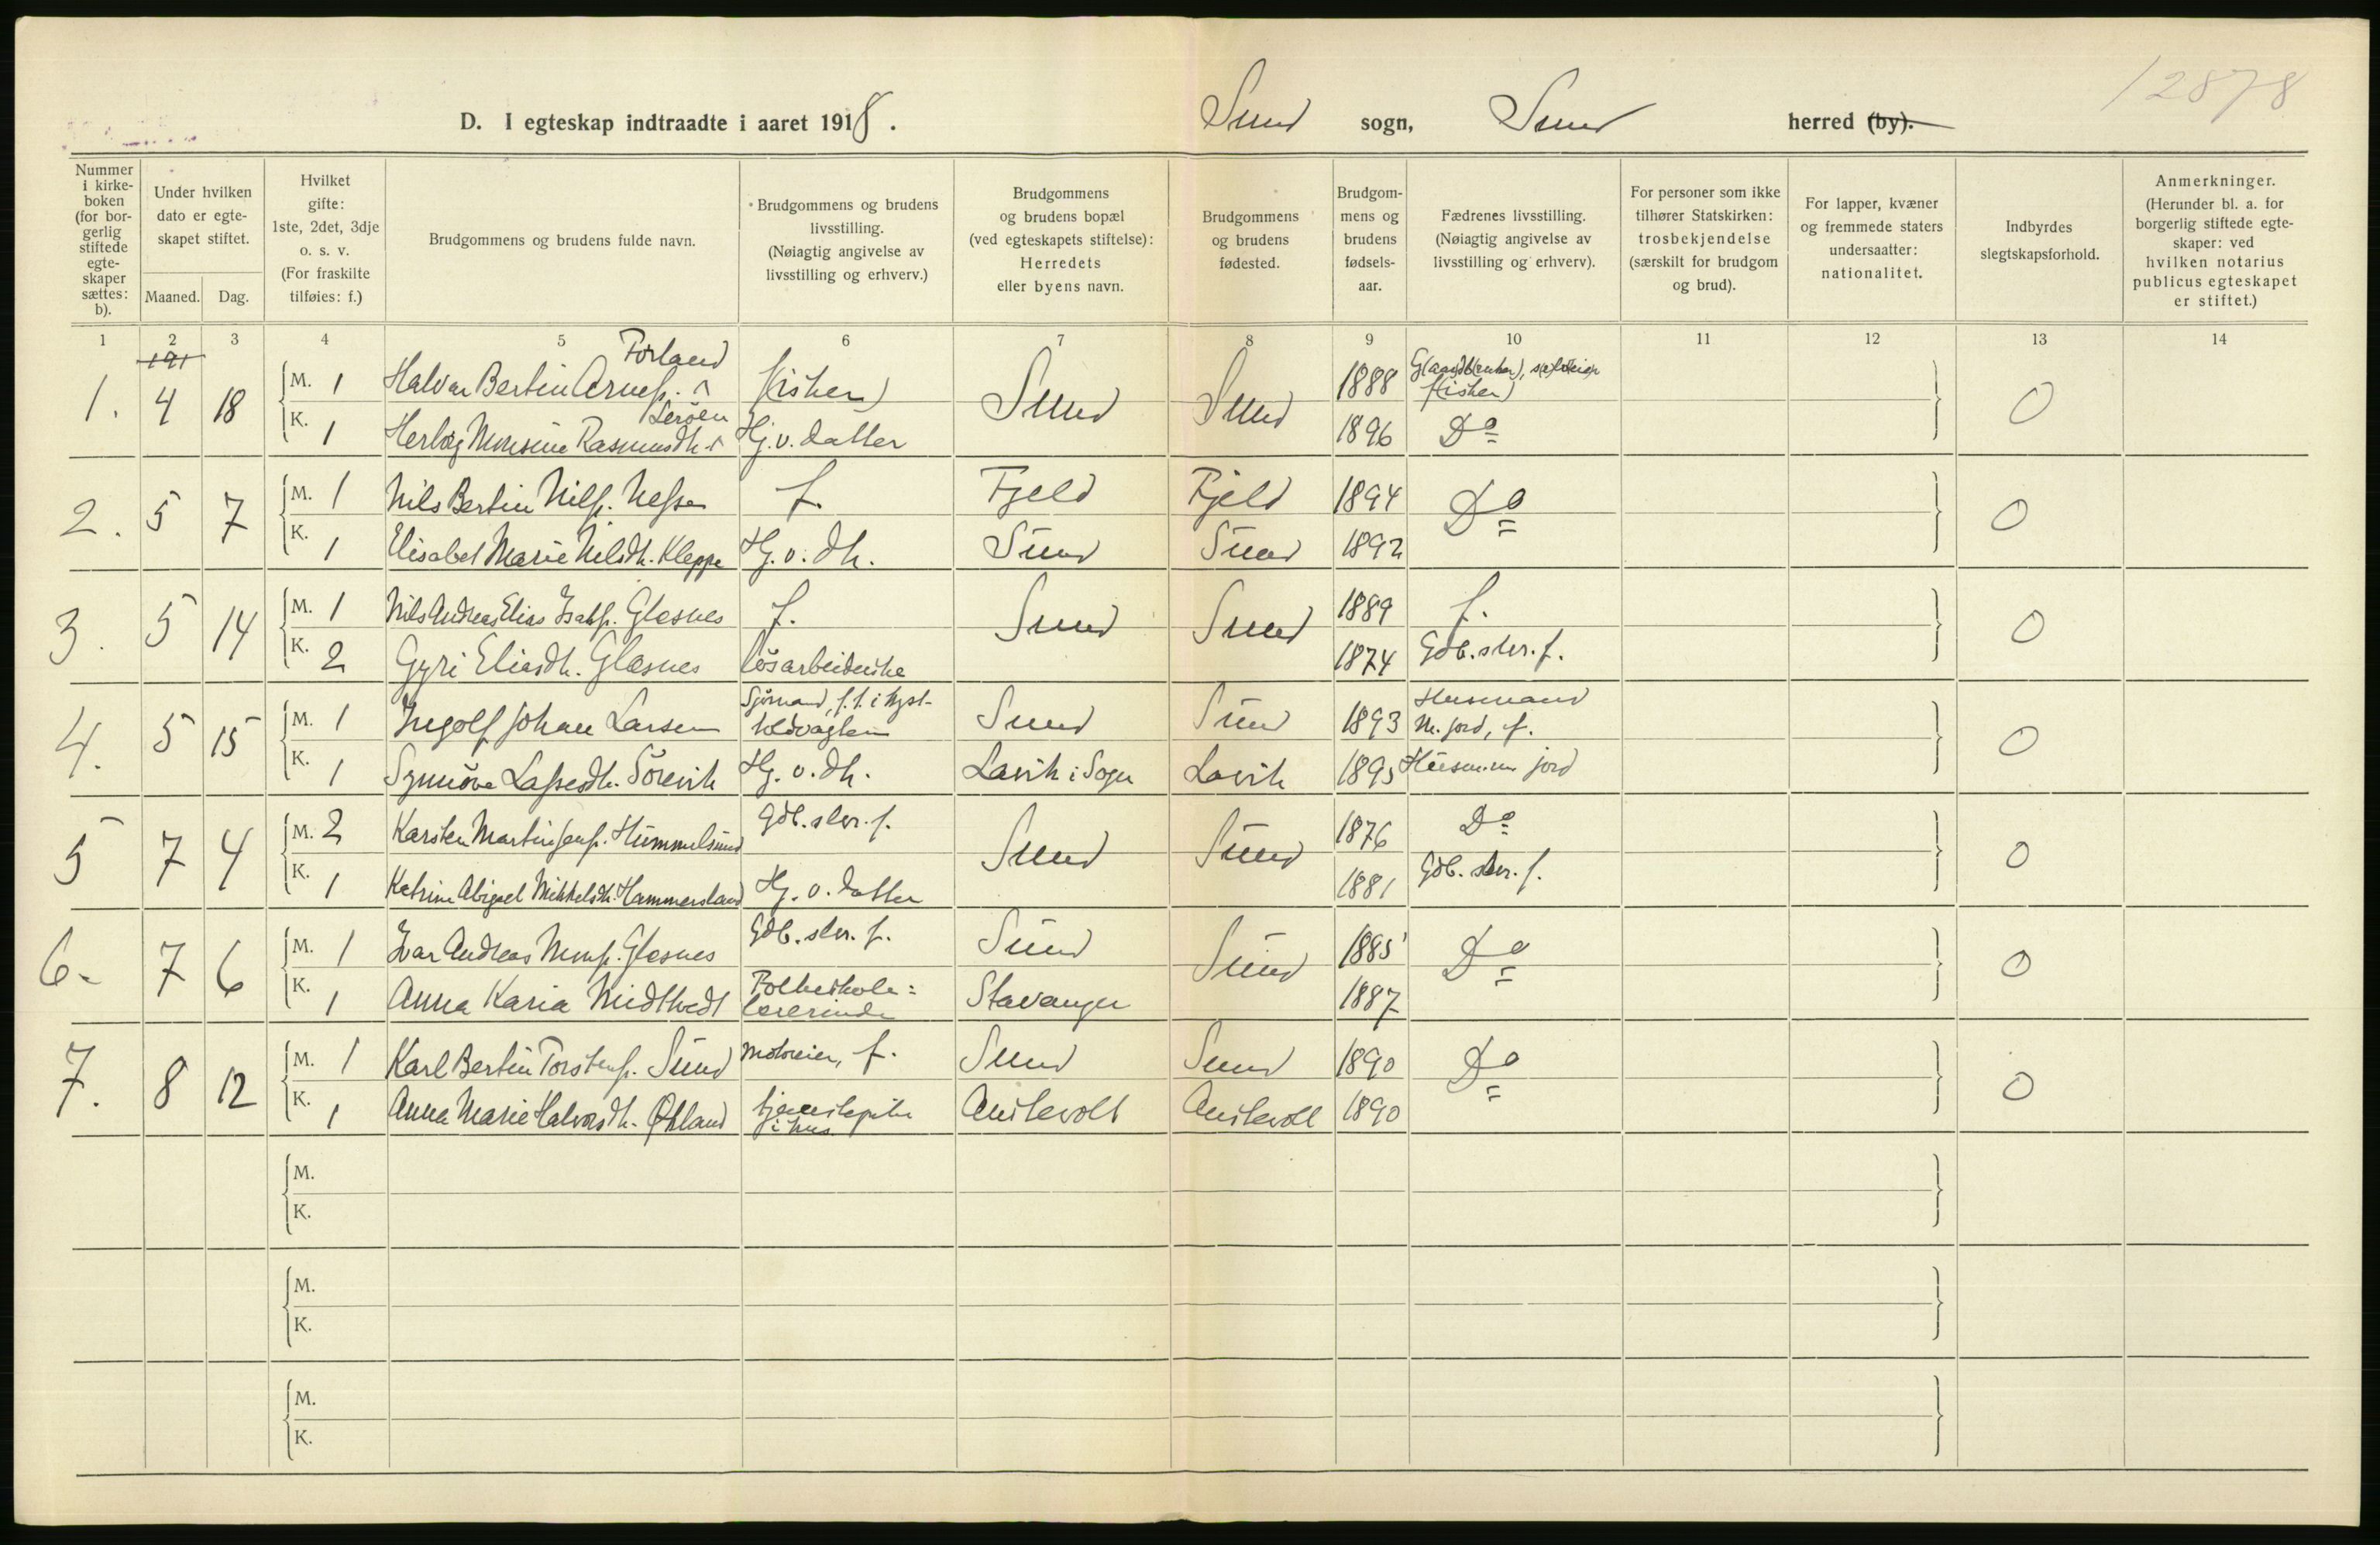 12878
D. I egteskap indtraadte i aaret 1918. Sund sogn, Sund herred (by).
Nummer i kirke-boken (for bor-gerlig stiftede egte-skaper sættes: b).
Under hvilken dato er egte-skapet stiftet.
Maaned. Dag.
Hvilket gifte: 1ste, 2det, 3dje o. s. v. (For fraskilte tilføies: f.)
Brudgommens og brudens fulde navn.
Brudgommens og brudens livsstilling. (Nøiagtig angivelse av livsstilling og erhverv.)
Brudgommens og brudens bopæl (ved egteskapets stiftelse): Herredets eller byens navn.
Brudgommens og brudens fødested.
Brudgom-mens og brudens fødsels-aar.
Fædrenes livsstilling. (Nøiagtig angivelse av livsstilling og erhverv).
For personer som ikke tilhører Statskirken: trosbekjendelse (særskilt for brudgom og brud).
For lapper, kvæner og fremmede staters undersaatter: nationalitet.
Indbyrdes slegtskapsforhold.
Anmerkninger. (Herunder bl. a. for borgerlig stiftede egte-skaper: ved hvilken notarius publicus egteskapet er stiftet.)
1 2 3 4 5 6 7 8 9 10 11 12 13 14
191
Forland
1. 4 18 M. 1 Halvar Bertin Arnes. f(isker) Sund Sund 1888 G(aard)b(ruker), s(e)lveier f(isker) 0
Lerøen
K. 1 Herlög Monsine Rasmusdtr. Hj.v. datter 1896 Do
2. 5 7 M. 1 Nils Bertin Nilss. Nesse f. Fjeld Fjeld 1894 Do 0
K. 1 Elisabet Marie Nilsdtr. Kleppe Hj.v. dtr. Sund Sund 1892
3. 5 14 M. 1 Nils Andreas Elias Isaks. Glesnes f. Sund Sund 1889 f. 0
K. 2 Gyri Eliasdtr. Glesnes løsarbeiderske 1874 Gdb. slvr. f.
4. 5 15 M. 1 Ingolf Johan Larsen Sjømand, f. t. i kyst-toldvagten Sund Sund 1893 Husmand m. jord, f. 0
K. 1 Synnöve Lassesdtr. Sörevik Hj. v. dtr. Lavik i Sogn Lavik 1895 Husm. m. jord
5 7 4 M. 2 Karsten Martin Jens. Hummelsund Gdb. slvr. f. Sund Sund 1876 Do 0
K. 1 Katrine Abigael Mikkelsdtr. Hammersland Hj. v. datter 1881 Gdb. slvr. f.
6. 7 6 M. 1 Ivar Andreas Mons. Glesnes Gdb. slvr. f. Sund Sund 1885 Do 0
K. 1 Anna Karia Midttvedt Folkeskole=lærerinde Stavanger 1887
7. 8 12 M. 1 Karl Bertin Torstens. Sund Motoreier, f. Sund Sund 1890 Do 0
K. 1 Anna Marie Halvorsdtr. Økland tjenestepike i hus Austevoll Austevoll 1890
M.
K.
M.
K.
M.
K.